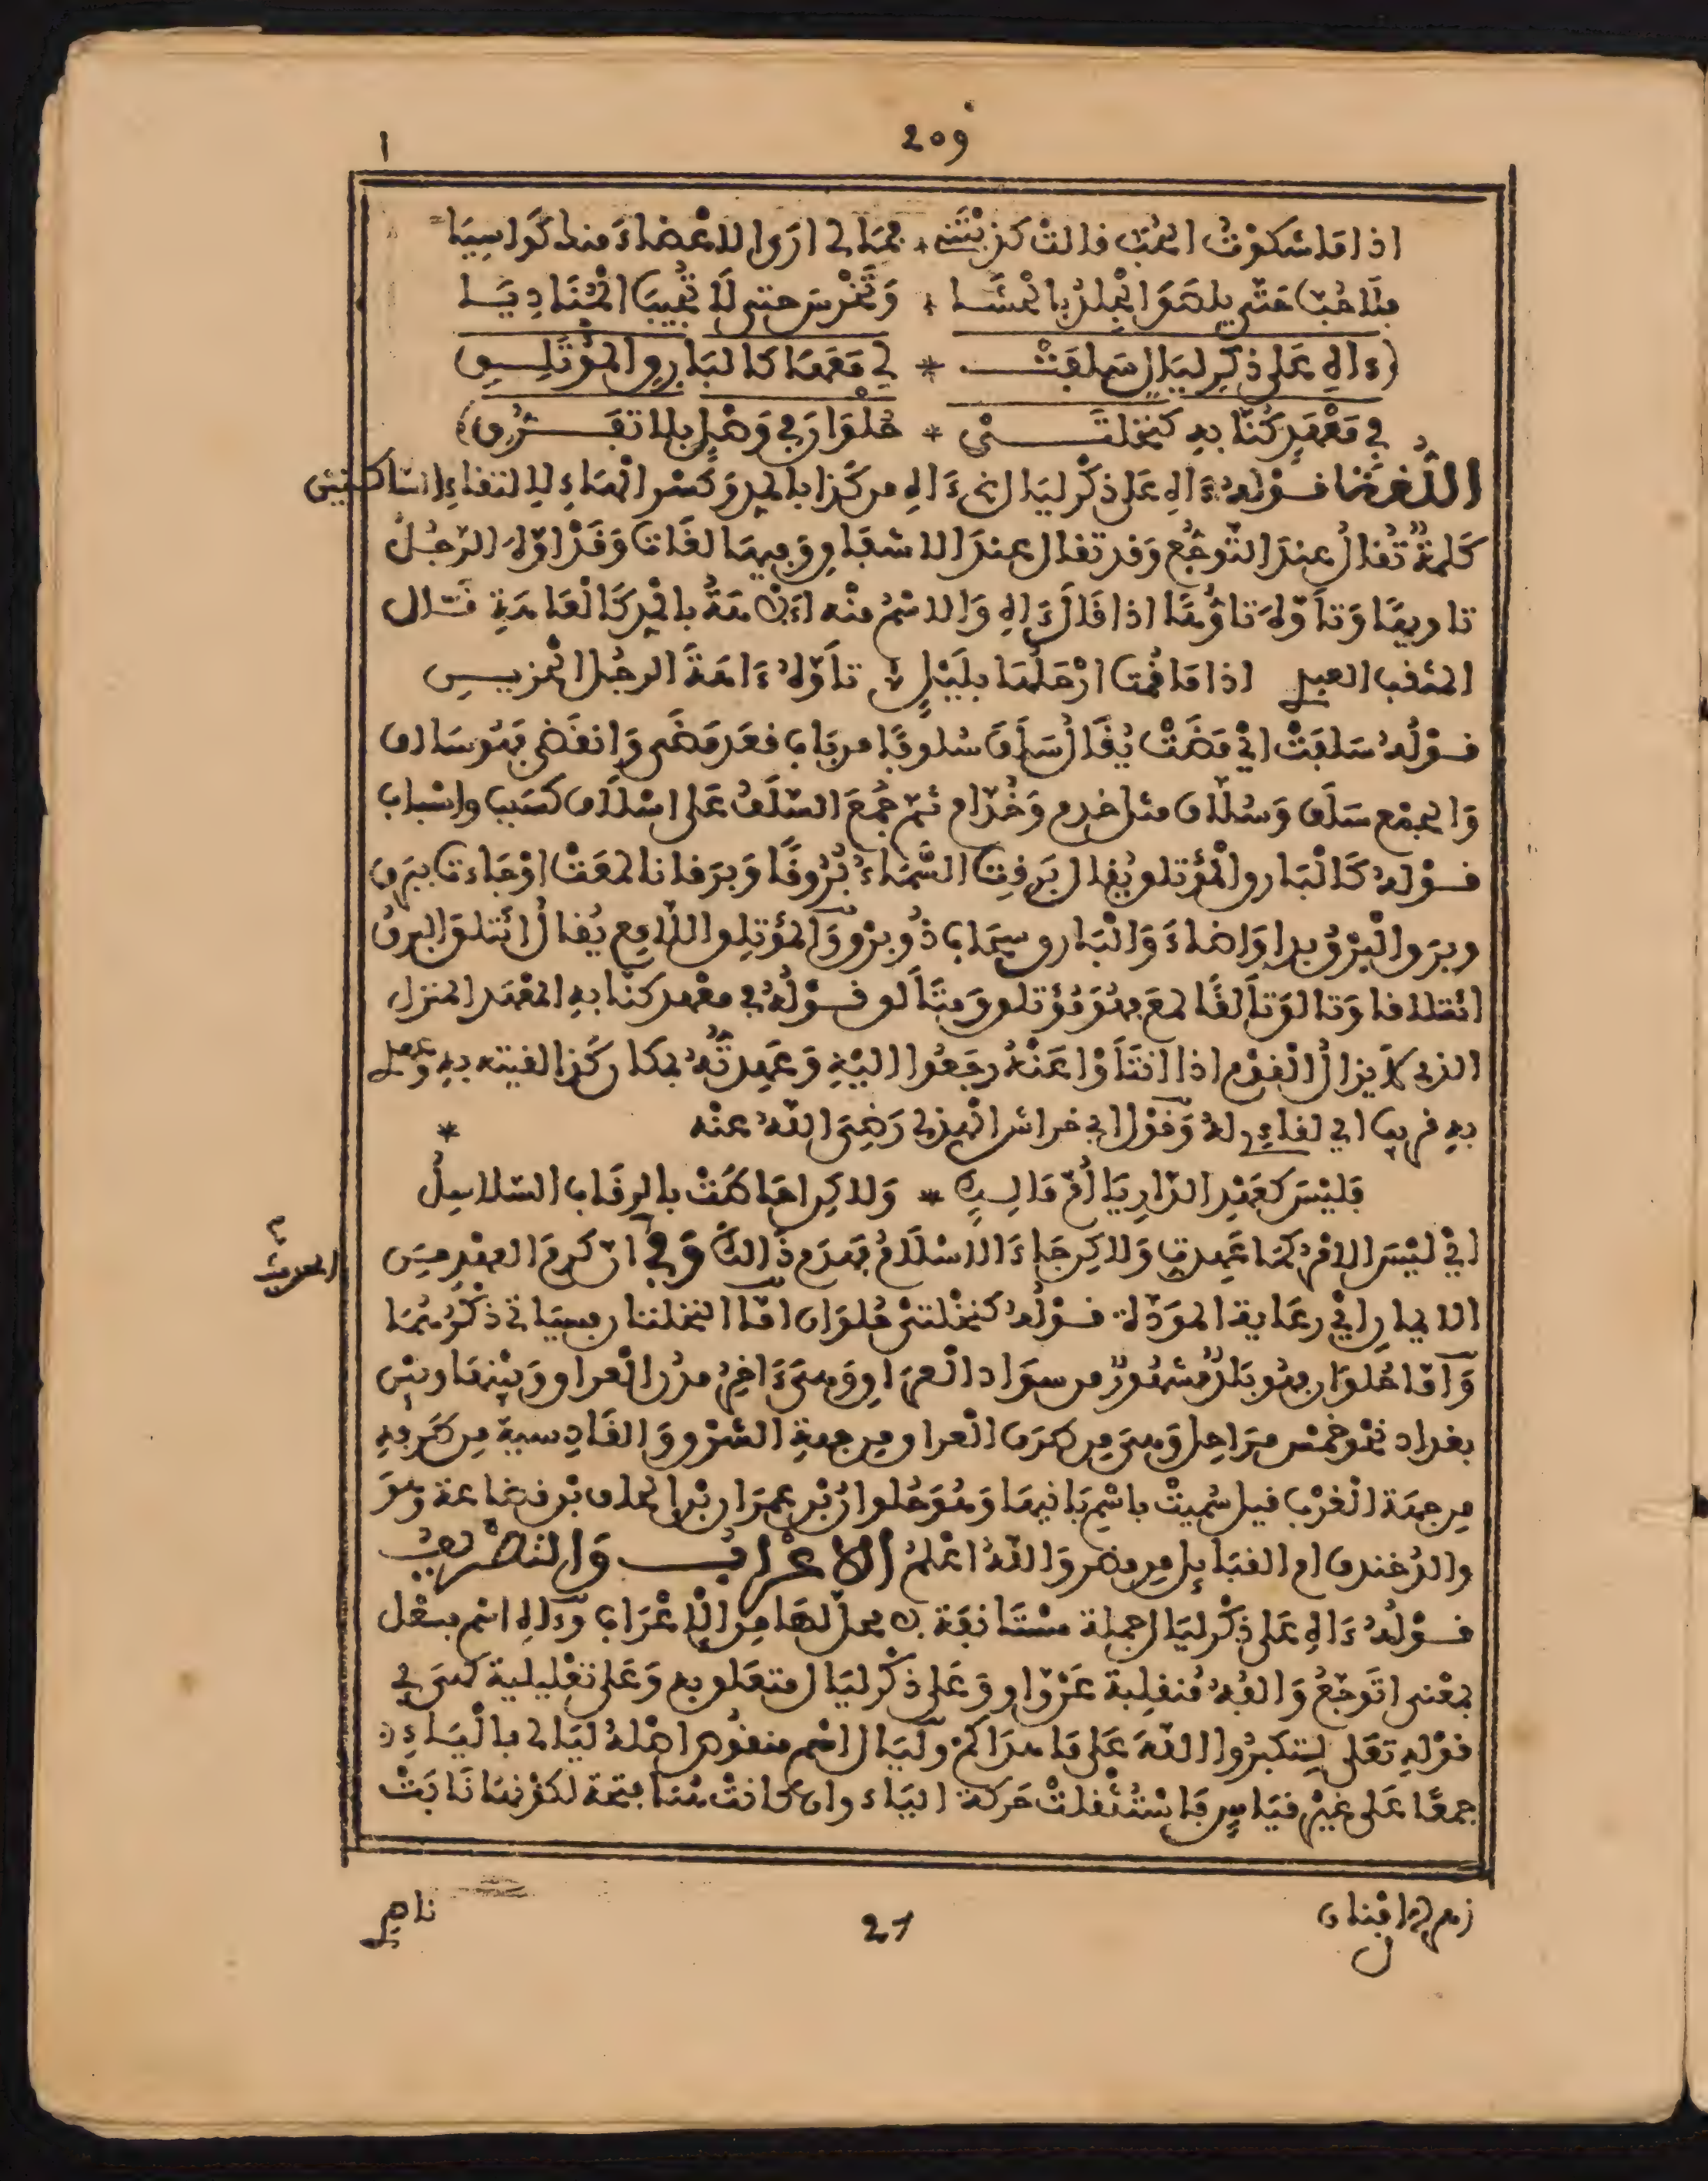 209
ا
اذا ما شكوت الحب قالت كذبتني * فما لي ارى الاعضاء منك كواسيا
فلا حب حتى يلصق الجلد بالحشا * وتخرس حتى لا تجيب المناديا
(ءاه على ذكر ليال سلفت * لي معها كالبارق المؤتلق
في معهد كنا به كنخلتى * حلوان في وصل بلا تفرق)
اللغة قوله ءاه على ذكر ليال اي ءاه من كذا بالمد وكسر الهاء لالتقاء الساكنين
كلمة تقال عند التوجع وقد تقال عند الاشفاق وفيها لغات وقد اوه الرجل
تاويها وتاوه تاوها اذا قال ءاه والاسم منه ءاهة بالمد كالعامة قال
المثقب العبدي اذا ما قمت ارحلها بليل * تاوه ءاهة الرجل الحزين
قوله سلفت اي مضت يقال سلف سلوفا من باب قعد مضى وانقضى فهو سالف
والجمع سلف وسلاف مثل خدم وخدام ثم جمع السلف على اسلاف كسبب واسباب
قوله كالبارق المؤتلق يقال برقت السماء بروقا وبرقانا لمعت او جاءت ببرق
وبرق البرق بدا واضاء والبارق سحاب ذو برق والمؤتلق اللامع يقال ائتلق البرق
ائتلاقا وتالق تألقا لمع فهو مؤتلق ومتألق قوله في معهد كنا به المعهد المنزل
الذي لا يزال القوم اذا انتأوا عنه رجعوا اليه وعهدته بمكان كذا لقيته به وعهدي
به قريب اي لقاءي له وقول ابي خراش الهذلي رضي الله عنه *
فليس كعهد الدار يا أم مالك * ولاكن احاطت بالرقاب السلاسل
اي ليس الامر كما عهدت ولاكن جاء الاسلام فهدم ذالك وفي ان كرم العهد من
الحديث
الايمان اي رعاية المودة قوله كنخلتى حلوان اما النخلتان فسياتي ذكرهما
وأما حلوان فهو بلد مشهور من سواد العراق وهى ءاخر مدن العراق وبينها وبين
بغداد نحو خمس مراحل وهى من طرف العراق من جهة الشرق والقادسية من طرفه
من جهة الغرب قيل سميت باسم بانيها وهو حلوان بن عمران بن الحاف بن قضاعة وهو
والد خندف ام القبايل من مضر والله اعلم الاعراب والتصريف
قوله ءاه على ذكر ليال جملة مستانفة لا محل لها من الاعراب وءاه اسم فعل
بمعنى اتوجع والفه منقلبة عن واو وعلى ذكر ليال متعلق به وعلى تعليلية كهى في
قوله تعلى لتكبروا الله على ما هداكم وليال اسم منقوص اصله ليالي بالياء لان
جمعا على غير قياس فاستثقلت حركة الياء وان كانت فتحة لكونها نابت
زهر الافنان
21
ناهي